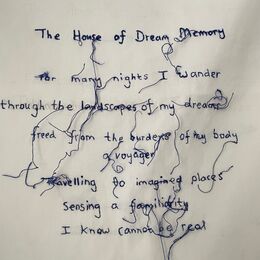 The House of Dream Memory
For many nights I wander
through the landscapes of my dreams
freed from the burdens of my body
a voyager
travelling to imagined places
Sensing a familiarity
I know cannot be real